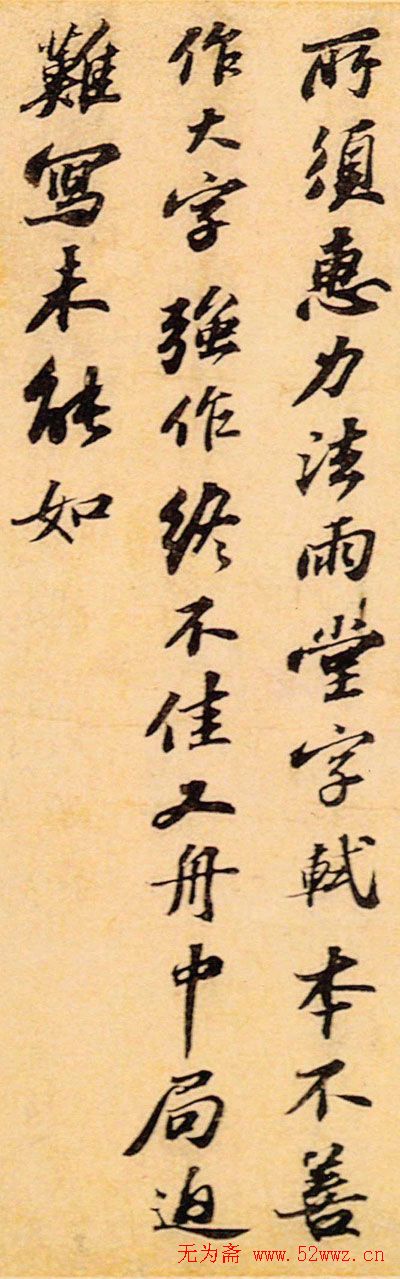 所須惠力法雨堂字軾本不善
作大字強作終不佳又舟中局迫
難寫未能如
无为斋 www.52wwz.cn